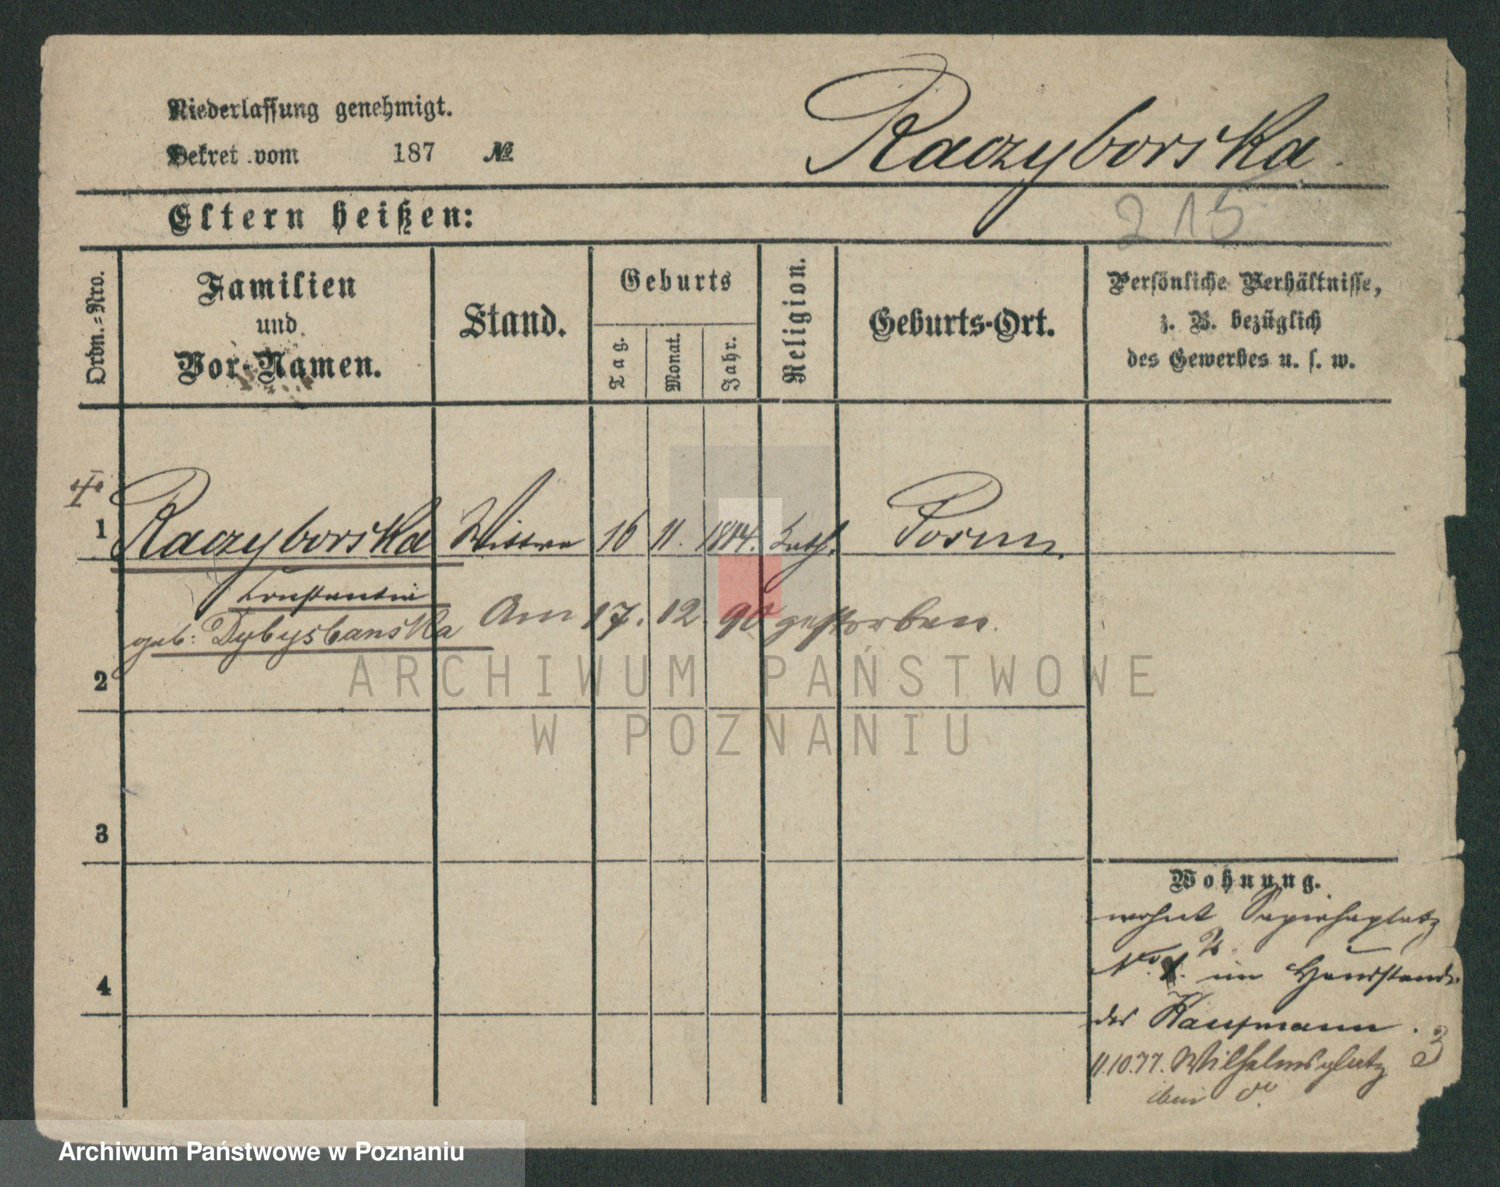 Niederlassung genehmigt.
Dekret vom 187 №
Raczyborska.
215
Eltern heißen:
Ordn.-Nro.
Familien
und
Vor-Namen.
Stand.
Geburts
Tag.
Monat.
Jahr.
Religion.
Geburts-Ort.
Persönliche Verhältnisse,
z. B. bezüglich
des Gewerbes u. s. w.
1 Raczyborska Wittwe 16 11. 1814. kath. Posen.
Constantia
geb: Dybysbanska
Am 17. 12 90 gestorben.
2
ARCHIWUM PAŃSTWOWE
W POZNANIU
3
Wohnung.
wohnt Sapiehaplatz
No. 2 im Hausstande
4
des Kaufmann.
11.10.77. Wilhelmsplatz 3
Archiwum Państwowe w Poznaniu